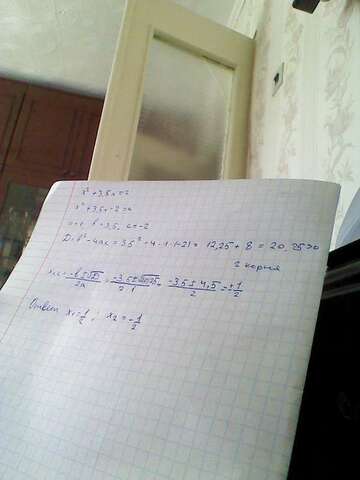 x² + 3,5x = 2
x² + 3,5x - 2 = 0
a = 1 b = 3,5, c = -2
D = b² - 4ac = 3,5² - 4 · 1 · (-2) = 12,25 + 8 = 20,25 > 0
2 корня
x₁,₂ = -b ± √D / 2a = -3,5 ± √20,25 / 2·1 = -3,5 ± 4,5 / 2 = ± 1/2
Ответ x₁ = 1/2 ; x₂ = - 1/2